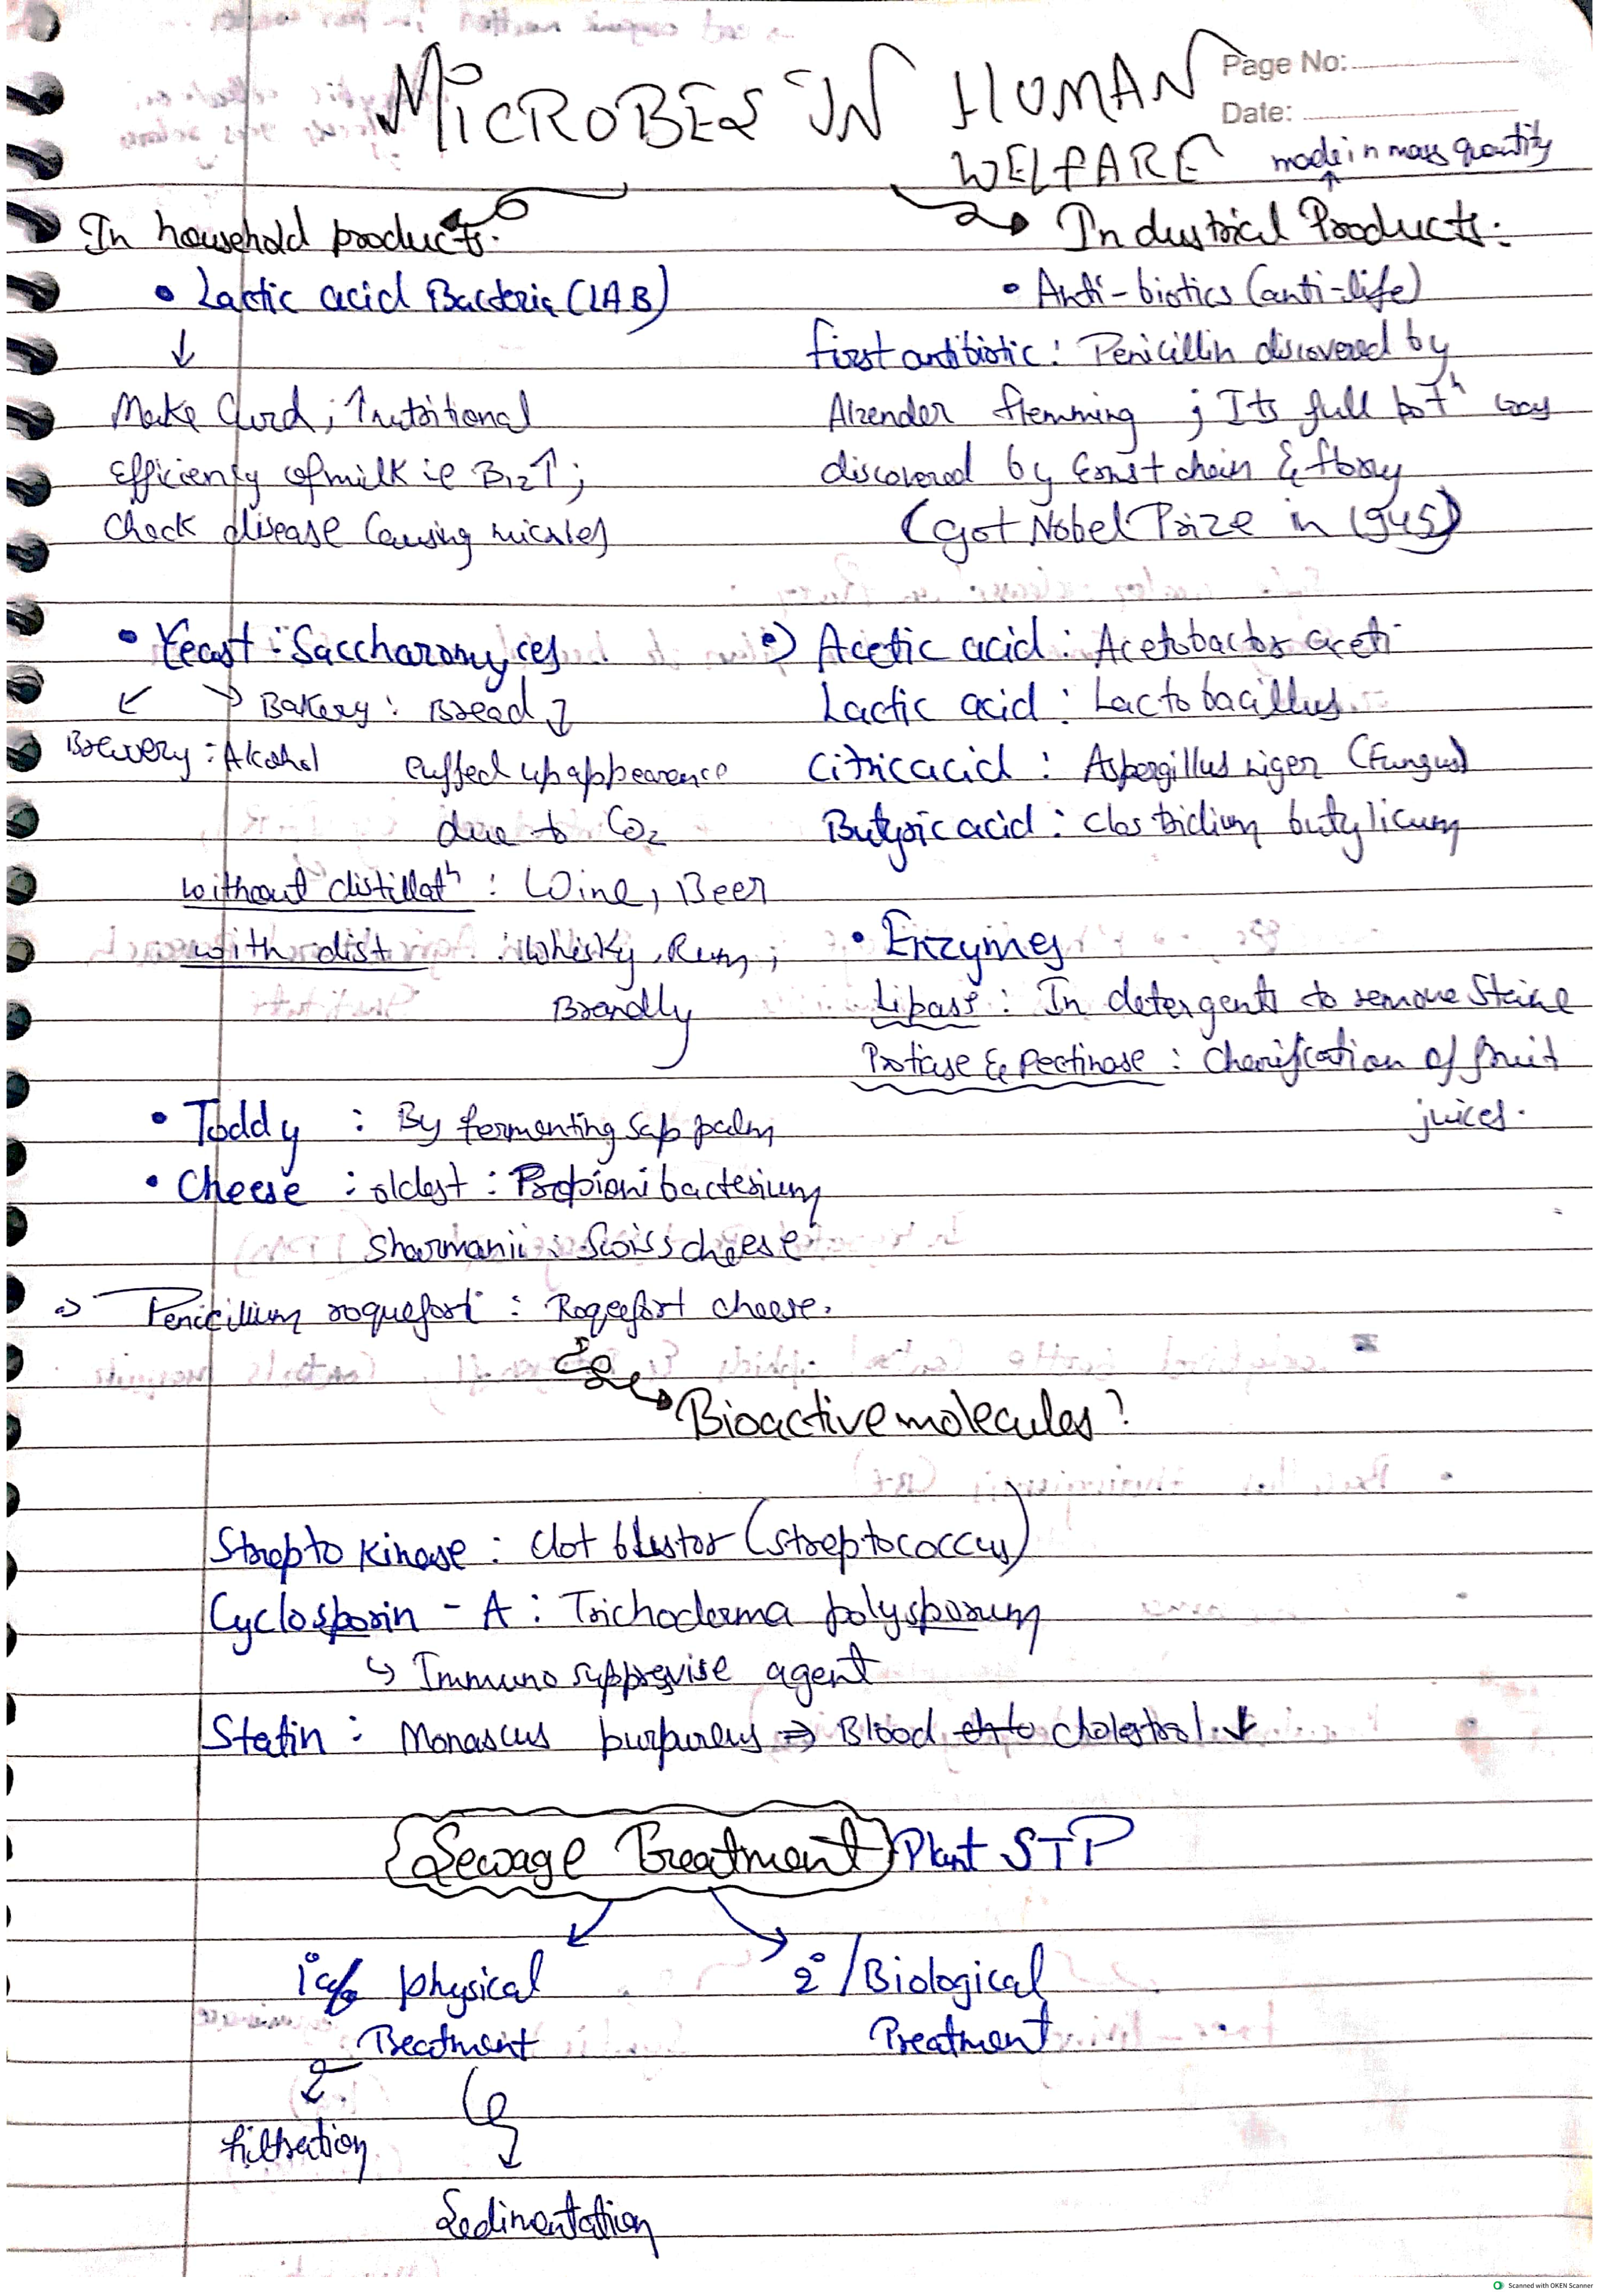 MICROBES IN HUMAN
WELFARE
Page No:
Date:
made in mass quantity
In household products:
• Lactic acid Bacteria (LAB)
↓
Make Curd; ↑nutritional
efficiency of milk ie B12↑;
Check disease Causing micrbes
• Yeast: Saccharomyces
Bakery: Bread
Brewery: Alcohol
Puffed up appearence
due to CO2
without distillatn: Wine, Beer
with dist : Whisky, Rum,
Brandly
• Toddy : By fermenting sap palm
• Cheese : oldest : Propionibacterium
Sharmanii : Swiss cheese
⇒ Penicillium roqueforti : Roqeefort cheese.
Industrical Products:
• Anti-biotics (anti-life)
first antibiotic: Penicillin discovered by
Alxender flemming ; Its full potn was
discovered by Ernst chain & florey
(got Nobel Prize in 1945)
•) Acetic acid: Acetobactor aceti
Lactic acid: Lactobacillus
Citric acid: Aspergillus niger (Fungus)
Butyric acid: Clostridium butylicum
• Enzymes
Lipase: In detergents to remove Staine
Protiase & Pectinase: Clarification of fruit
juices.
Bioactive molecules?
Streptokinase: Clot blustor (streptococcus)
Cyclosporin - A: Trichoderma polysporum
↳ Immuno supprevise agent
Statin: Monascus purpureus ⇒ Blood cholestrol ↓
Sewage Treatment Plant STP
1° physical
Treatment
2°/Biological
Treatment
filtration
Sedimentation
Scanned with OKEN Scanner